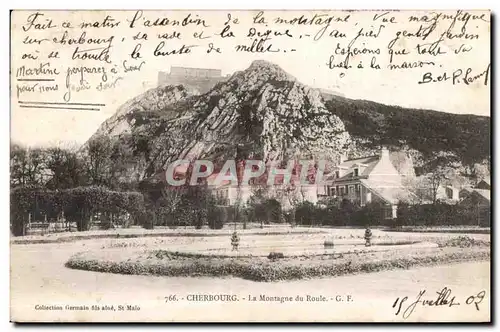 Fait ce matin l'ascension de la montagne. Vue magnifique
sur cherbourg, sa rade et la digue. Au pied gentil jardin
où se trouve le buste de millet.
Espérons que tout va
bien à la maison.
Martine préparez à
pour nous
B. et P. Lamy
CPARAMA
766. - CHERBOURG. - La Montagne du Roule. - G. F.
Collection Germain fils aîné, St Malo
15 Juillet 02